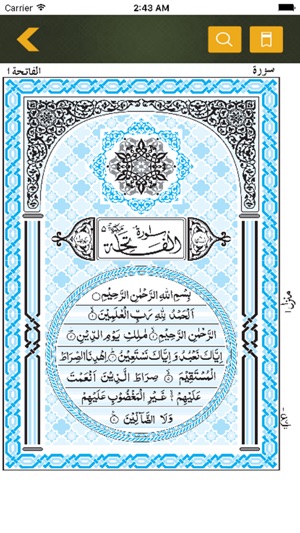 Carrier 2:43 AM
سورة الفاتحة ١
سورة الفاتحة
بِسْمِ اللّٰهِ الرَّحْمٰنِ الرَّحِيْمِ
اَلْحَمْدُ لِلّٰهِ رَبِّ الْعٰلَمِيْنَ
الرَّحْمٰنِ الرَّحِيْمِ مٰلِكِ يَوْمِ الدِّيْنِ
اِيَّاكَ نَعْبُدُ وَ اِيَّاكَ نَسْتَعِيْنُ اِهْدِنَا الصِّرَاطَ
الْمُسْتَقِيْمَ صِرَاطَ الَّذِيْنَ اَنْعَمْتَ
عَلَيْهِمْ غَيْرِ الْمَغْضُوْبِ عَلَيْهِمْ
وَلَا الضَّآلِّيْنَ
منزل ١